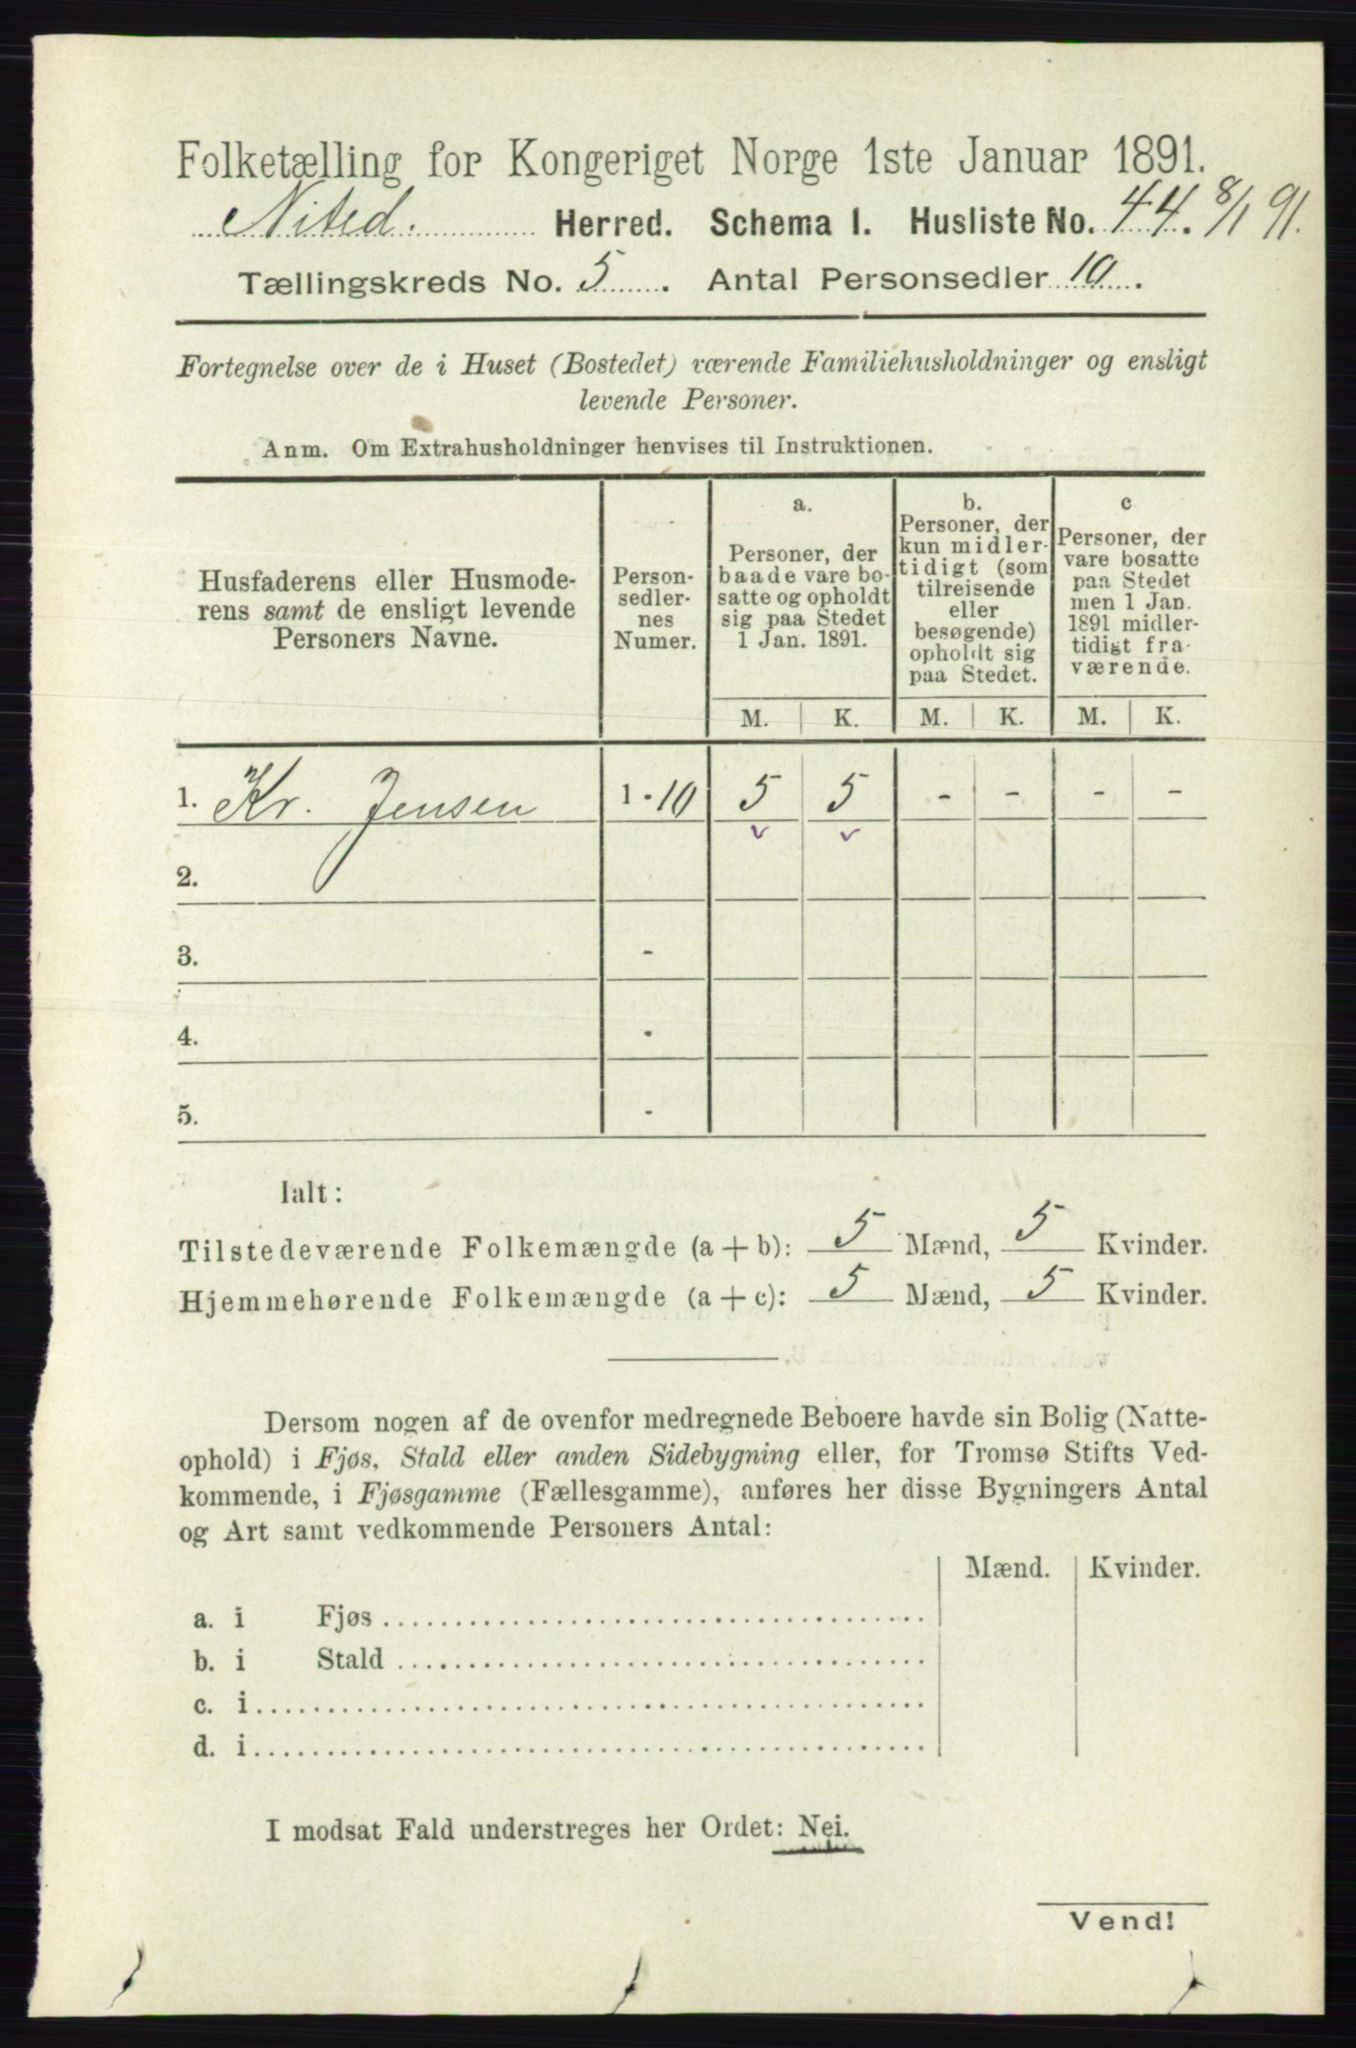 Folketælling for Kongeriget Norge 1ste Januar 1891.
Nited. Herred. Schema I. Husliste No. 44. 8/1 91.
Tællingskreds No. 5. Antal Personsedler 10.
Fortegnelse over de i Huset (Bostedet) værende Familiehusholdninger og ensligt
levende Personer.
Anm. Om Extrahusholdninger henvises til Instruktionen.
Husfaderens eller Husmode-
rens samt de ensligt levende
Personers Navne.
Person-
sedler-
nes
Numer.
a.
Personer, der
baade vare bo-
satte og opholdt
sig paa Stedet
1 Jan. 1891.
b.
Personer, der
kun midler-
tidigt (som
tilreisende
eller
besøgende)
opholdt sig
paa Stedet.
c
Personer, der
vare bosatte
paa Stedet
men 1 Jan.
1891 midler-
tidigt fra-
værende.
M. K. M. K. M. K.
1. Kr. Jensen 1-10 5 5 - - - -
2.
3. -
4. -
5. -
Ialt:
Tilstedeværende Folkemængde (a + b): 5 Mænd, 5 Kvinder.
Hjemmehørende Folkemængde (a + c): 5 Mænd, 5 Kvinder.
Dersom nogen af de ovenfor medregnede Beboere havde sin Bolig (Natte-
ophold) i Fjøs, Stald eller anden Sidebygning eller, for Tromsø Stifts Ved-
kommende, i Fjøsgamme (Fællesgamme), anføres her disse Bygningers Antal
og Art samt vedkommende Personers Antal:
Mænd. Kvinder.
a. i Fjøs
b. i Stald
c. i
d. i
I modsat Fald understreges her Ordet: Nei.
Vend!